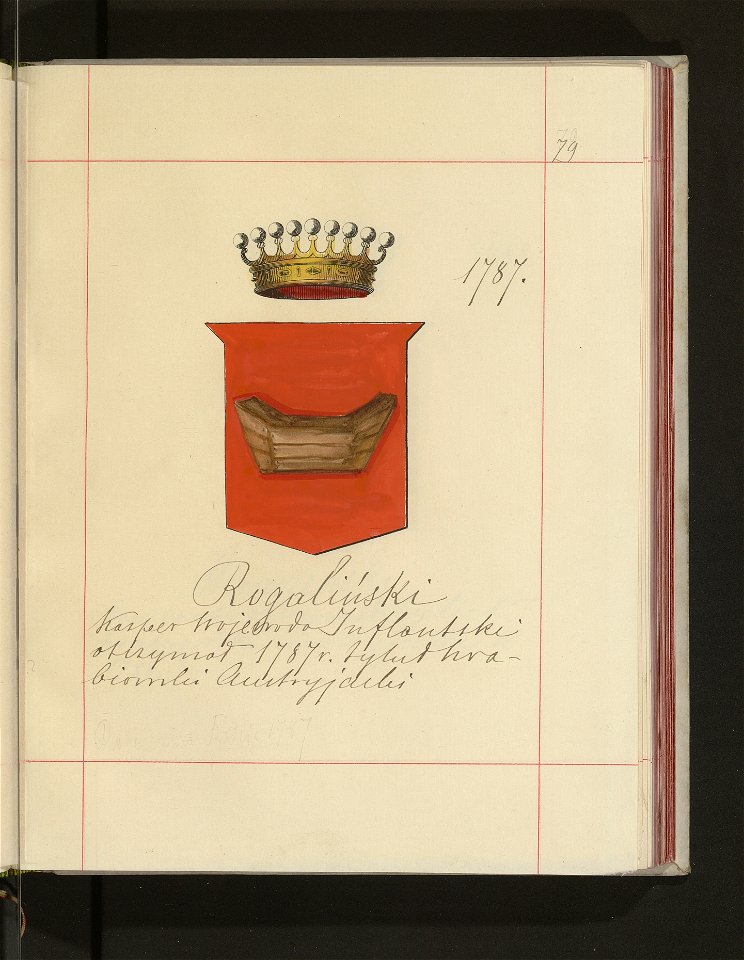 79
1787.
Rogaliński
Kasper Wojewoda Inflantski
otrzymał 1787 r. tytuł hra-
biowski Austryjacki